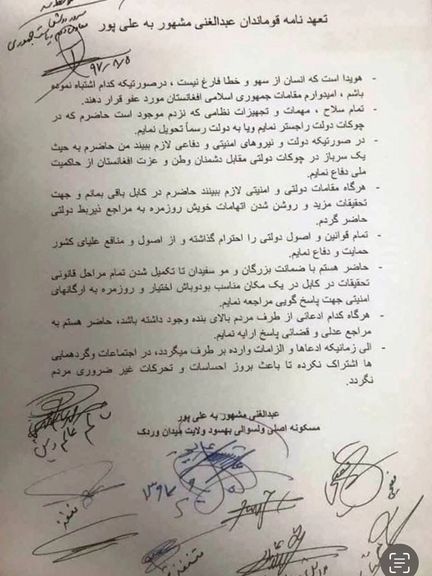 تعهد نامه قوماندان عبدالغنی مشهور به علی پور
۹۷/۸/۵
- هویدا است که انسان از سهو و خطا فارغ نیست ، درصورتیکه کدام اشتباه نموده
باشم ، امیدوارم مقامات جمهوری اسلامی افغانستان مورد عفو قرار دهند.
- تمام سلاح ، مهمات و تجهیزات نظامی که نزدم موجود است حاضرم که در
چوکات دولت راجستر نمایم ویا به دولت رسماً تحویل نمایم.
- در صورتیکه دولت و نیروهای امنیتی و دفاعی لازم ببیند من حاضرم به حیث
یک سرباز در چوکات دولتی مقابل دشمنان وطن و عزت افغانستان از حاکمیت
ملی دفاع نمایم.
- هرگاه مقامات دولتی و امنیتی لازم ببینند حاضرم در کابل باقی بمانم و جهت
تحقیقات مزید و روشن شدن اتهامات خویش روزمره به مراجع ذیربط دولتی
حاضر گردم.
- تمام قوانین و اصول دولتی را احترام گذاشته و از اصول و منافع علیای کشور
حمایت و دفاع نمایم.
- حاضر هستم با ضمانت بزرگان و مو سفیدان تا تکمیل شدن تمام مراحل قانونی
تحقیقات در کابل در یک مکان مناسب بودوباش اختیار و روزمره به ارگانهای
امنیتی جهت پاسخ گویی مراجعه نمایم.
- هرگاه کدام ادعائی از طرف مردم بالای بنده وجود داشته باشد، حاضر هستم به
مراجع عدلی و قضائی پاسخ ارایه نمایم.
- الی زمانیکه ادعاها و الزامات وارده بر طرف میگردد، در اجتماعات وگردهمایی
ها اشتراک نکرده تا باعث بروز احساسات و تحرکات غیر ضروری مردم
نگردد.
عبدالغنی مشهور به علی پور
مسکونه اصلی ولسوالی بهسود ولایت میدان وردک